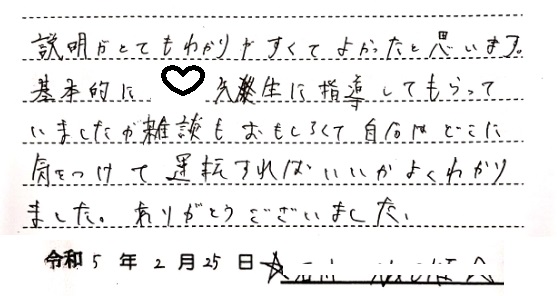 説明がとてもわかりやすくてよかったと思います。
基本的に 先生に指導してもらって
いましたが雑談もおもしろくて自分はどこに
気をつけて運転すればいいかよくわかり
ました。ありがとうございました。
令和5年2月25日